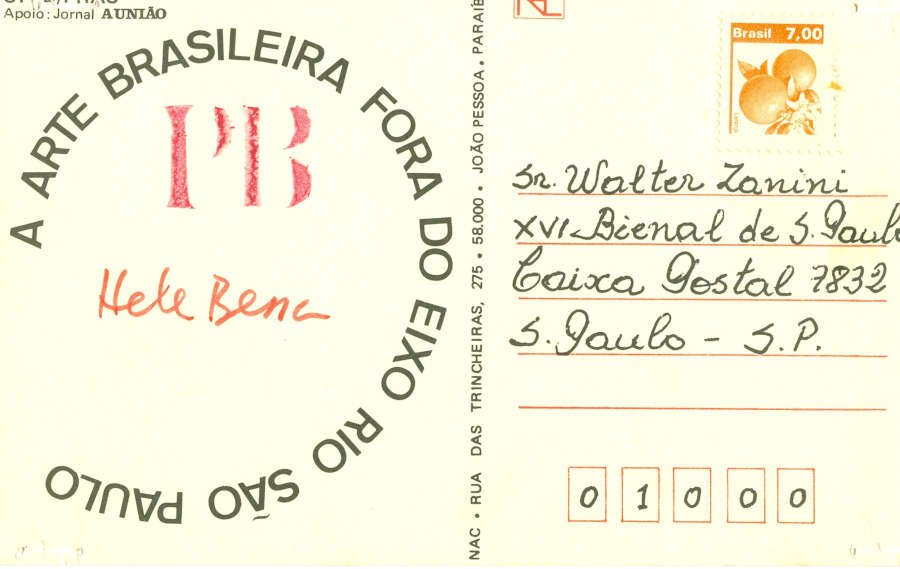 Apoio: Jornal A UNIÃO
A ARTE BRASILEIRA FORA DO EIXO RIO SÃO PAULO
PB
Hele Benc
NAC • RUA DAS TRINCHEIRAS, 275 • 58.000 • JOÃO PESSOA • PARAÍB
Brasil 7,00
Sr. Walter Zanini
XVI Bienal de S. Paulo
Caixa Postal 7832
S. Paulo - S.P.
0 1 0 0 0